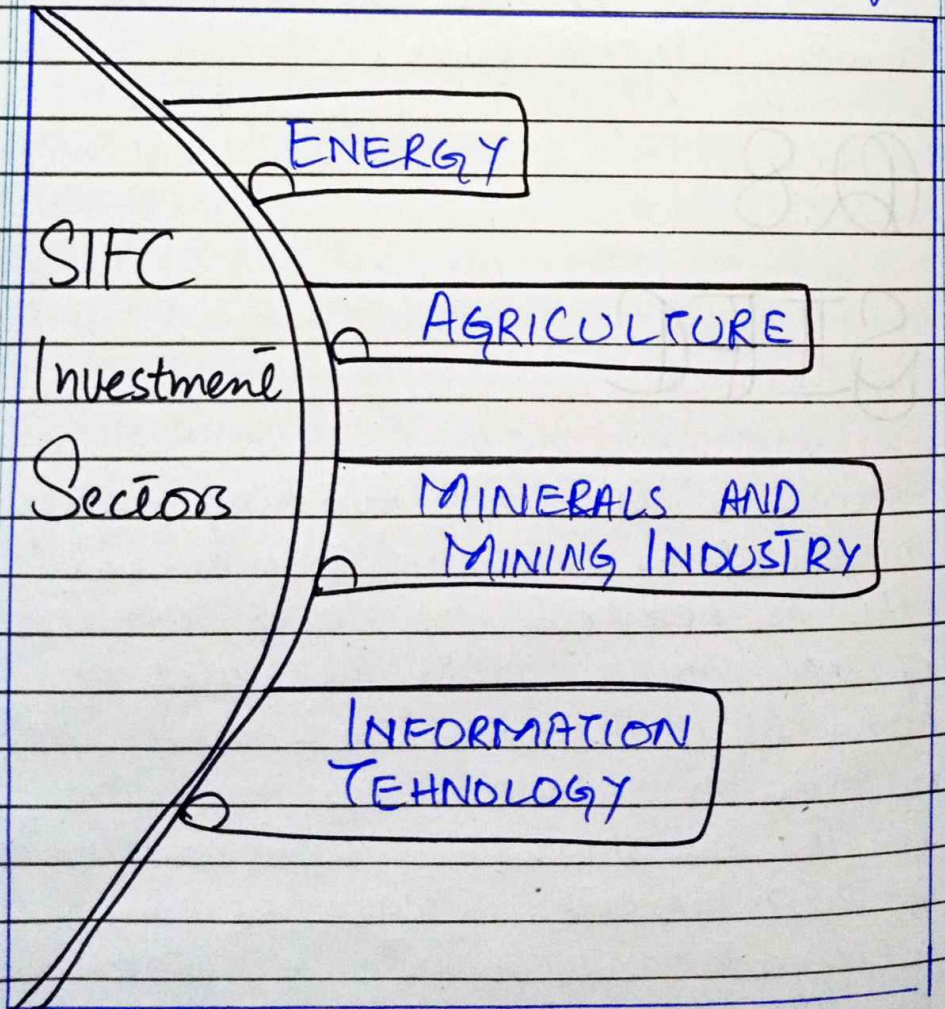 SIFC
Investment
Sectors
ENERGY
AGRICULTURE
MINERALS AND
MINING INDUSTRY
INFORMATION
TEHNOLOGY